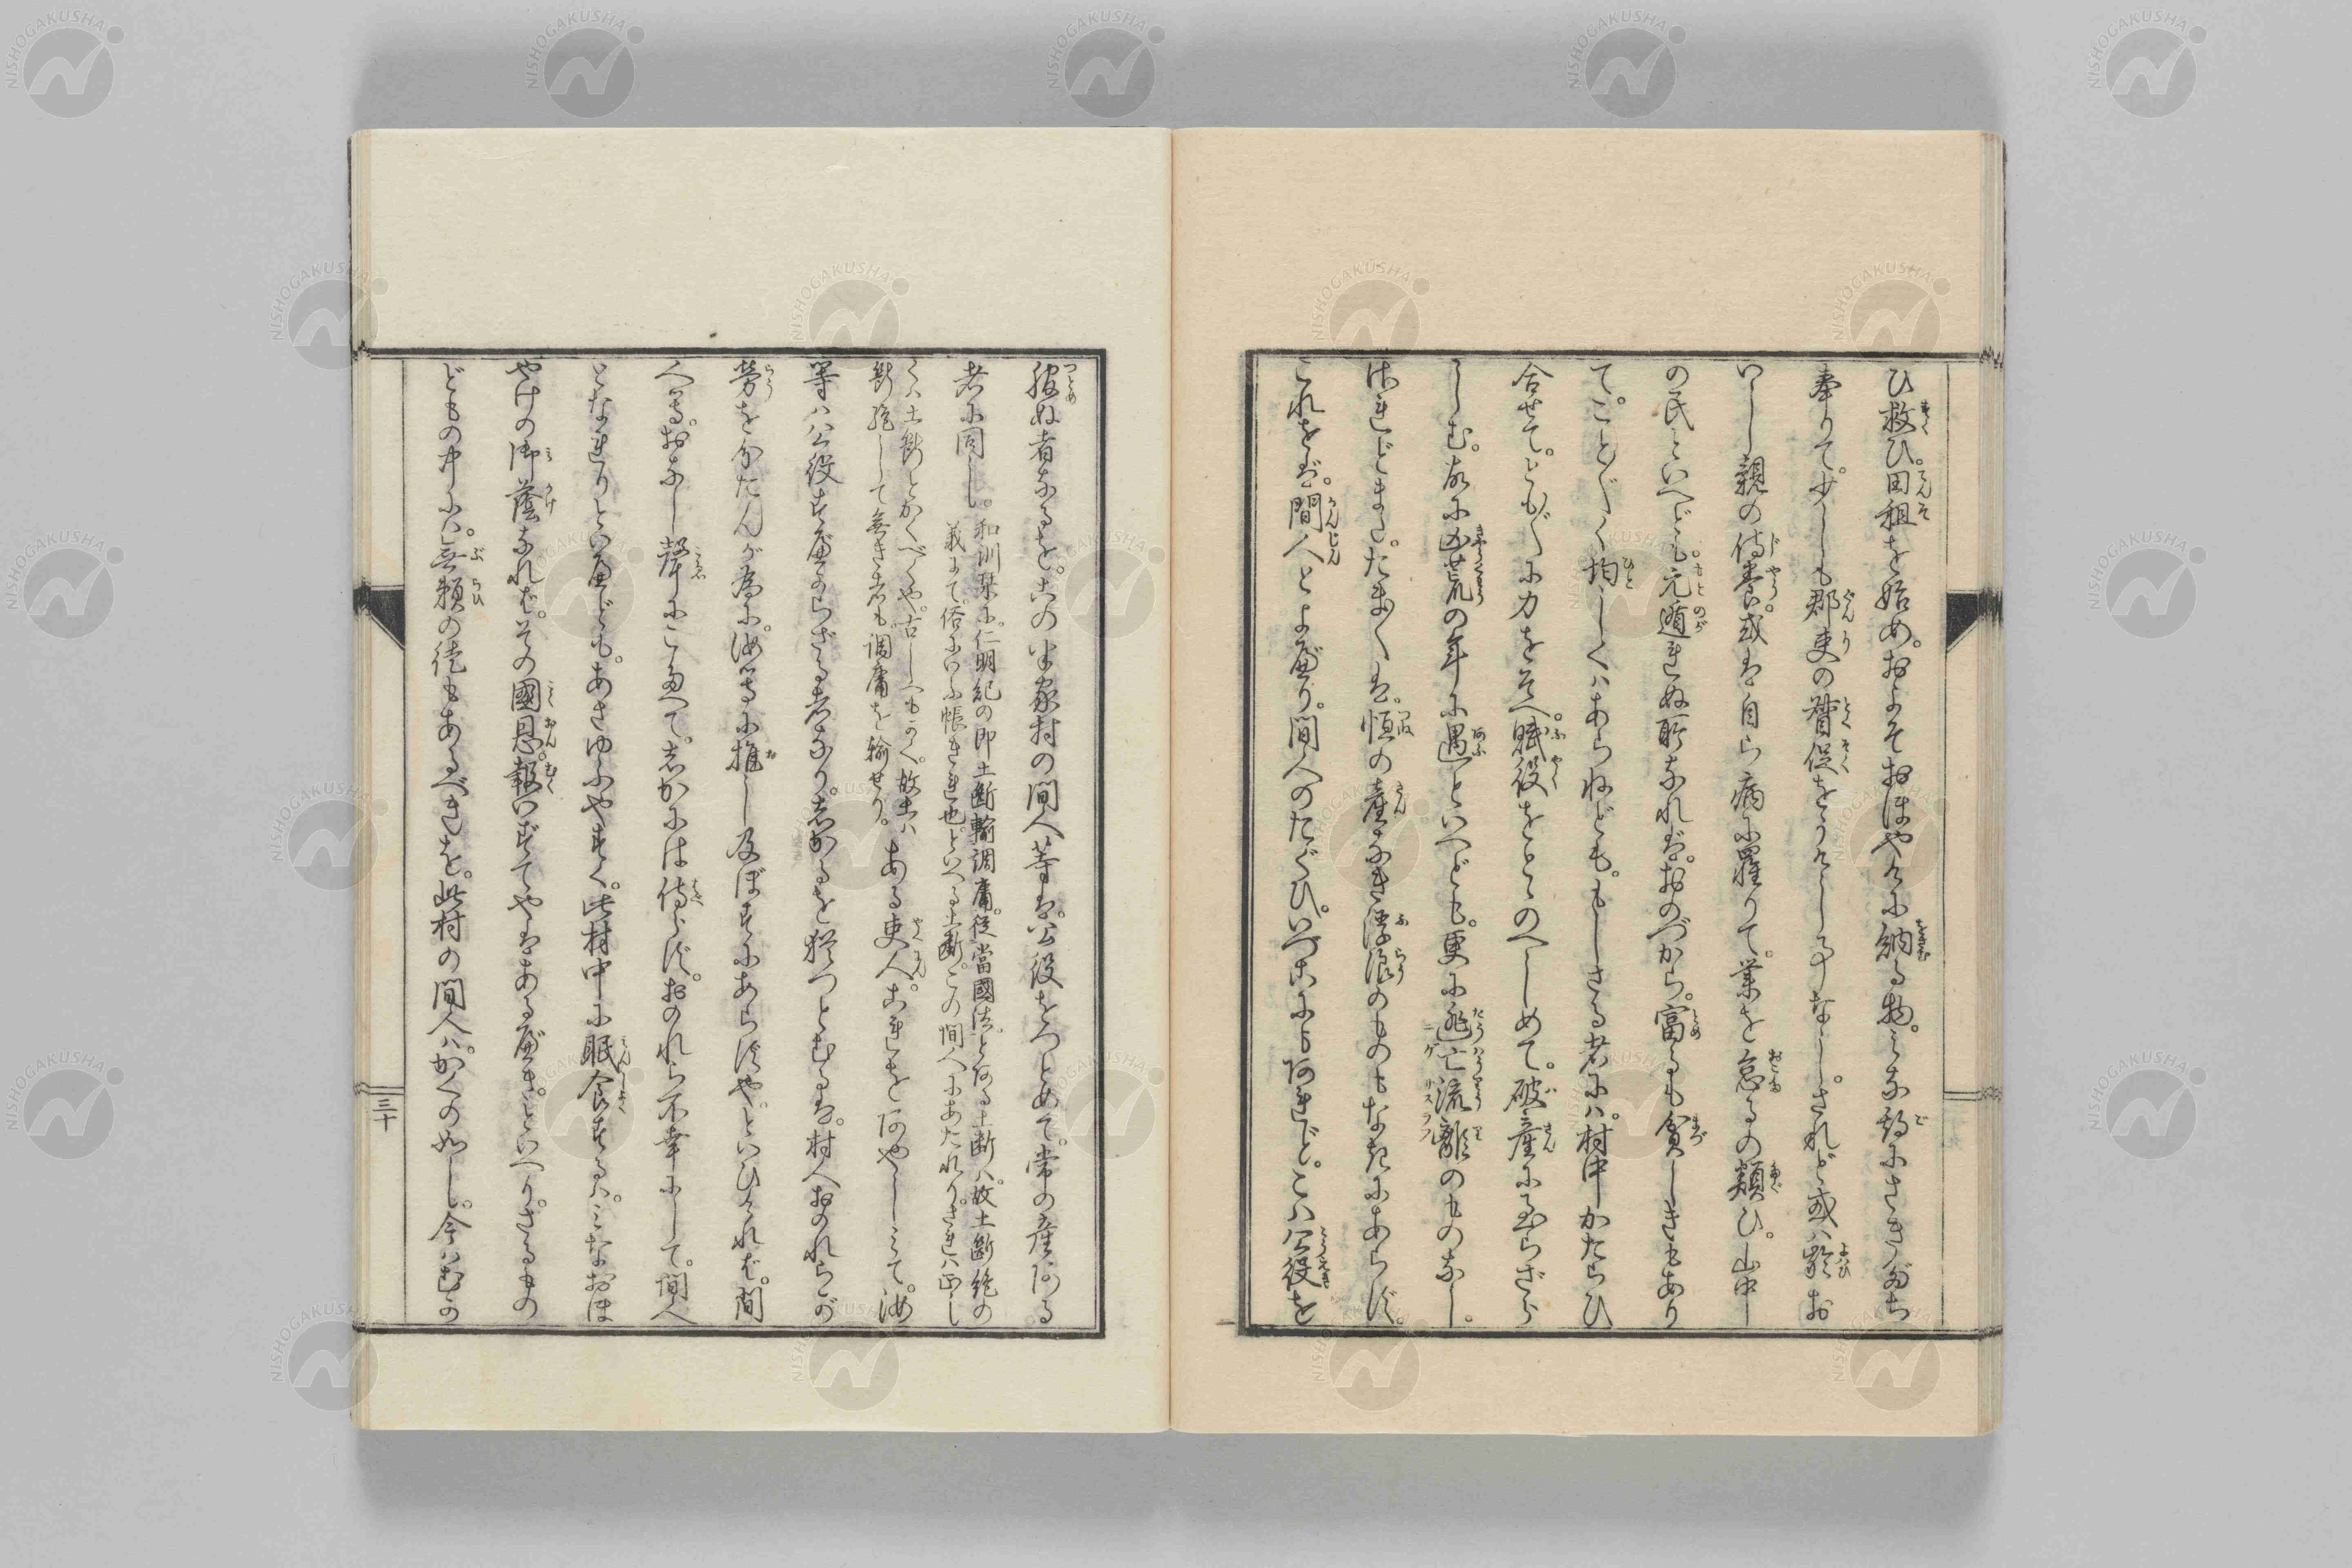 ひ救ひ。田租を始め。およそおほやけに納る物。みな期にさきだち
奉りて。少しも郡吏の督促をうけし事なし。されど或ハ齢お
いし親の侍養。或は自ら病に羅りて。業を怠るの類ひ。山中
の民といへども。元遁れぬ所なれば。おのづから。富るも貧しきもあり
て。こと〴〵く均しくハあらねども。もしさる者にハ。村中かたらひ
合せて。とも〴〵に力をそへ。賦役をとゝのへしめて。破産に至らざら
しむ。故に凶荒の年に遇といへども。更に逃亡流離のものなし。
されどまた。たま〳〵は。恒の産なき浮浪のものもなきにあらず。
これをば。間人とよべり。間人のたぐひ。いづこにも何れど。こハ公役を
服ぬ者なるを。この半家村の間人等は。公役をつとめて。常の産ある
者に同し。
和訓栞に。仁明紀の即土断輸調庸。従當國法。とある土断ハ。故土断絶の
義にて。俗にいふ帳きれ也。といへる土断。この間人にあたれり。されハ正し
くハ土断とかくべくや。古しへもかく。故土ハ
断絶して無き者も。調庸を輸せり。
ある吏人。これをあやしみて。汝
等ハ公役すべからざる者なり。しかるを猶つとむるは。村人おのれらが
労を分たんが為に。汝等に推し及ぼすにあらずや。といひければ。間
人等。おなし聲にこたへて。しかには侍らず。おのれら不幸にして。間人
となれりといへども。あさゆふやすく。此村中に眠食するハ。みなおほ
やけの御蔭なれば。その國恩。報いずてやはあるべき。といへり。さるもの
どもの中にハ。無頼の徒もあるべきを。此村の間人ハ。かくの如し。今はむか
三十